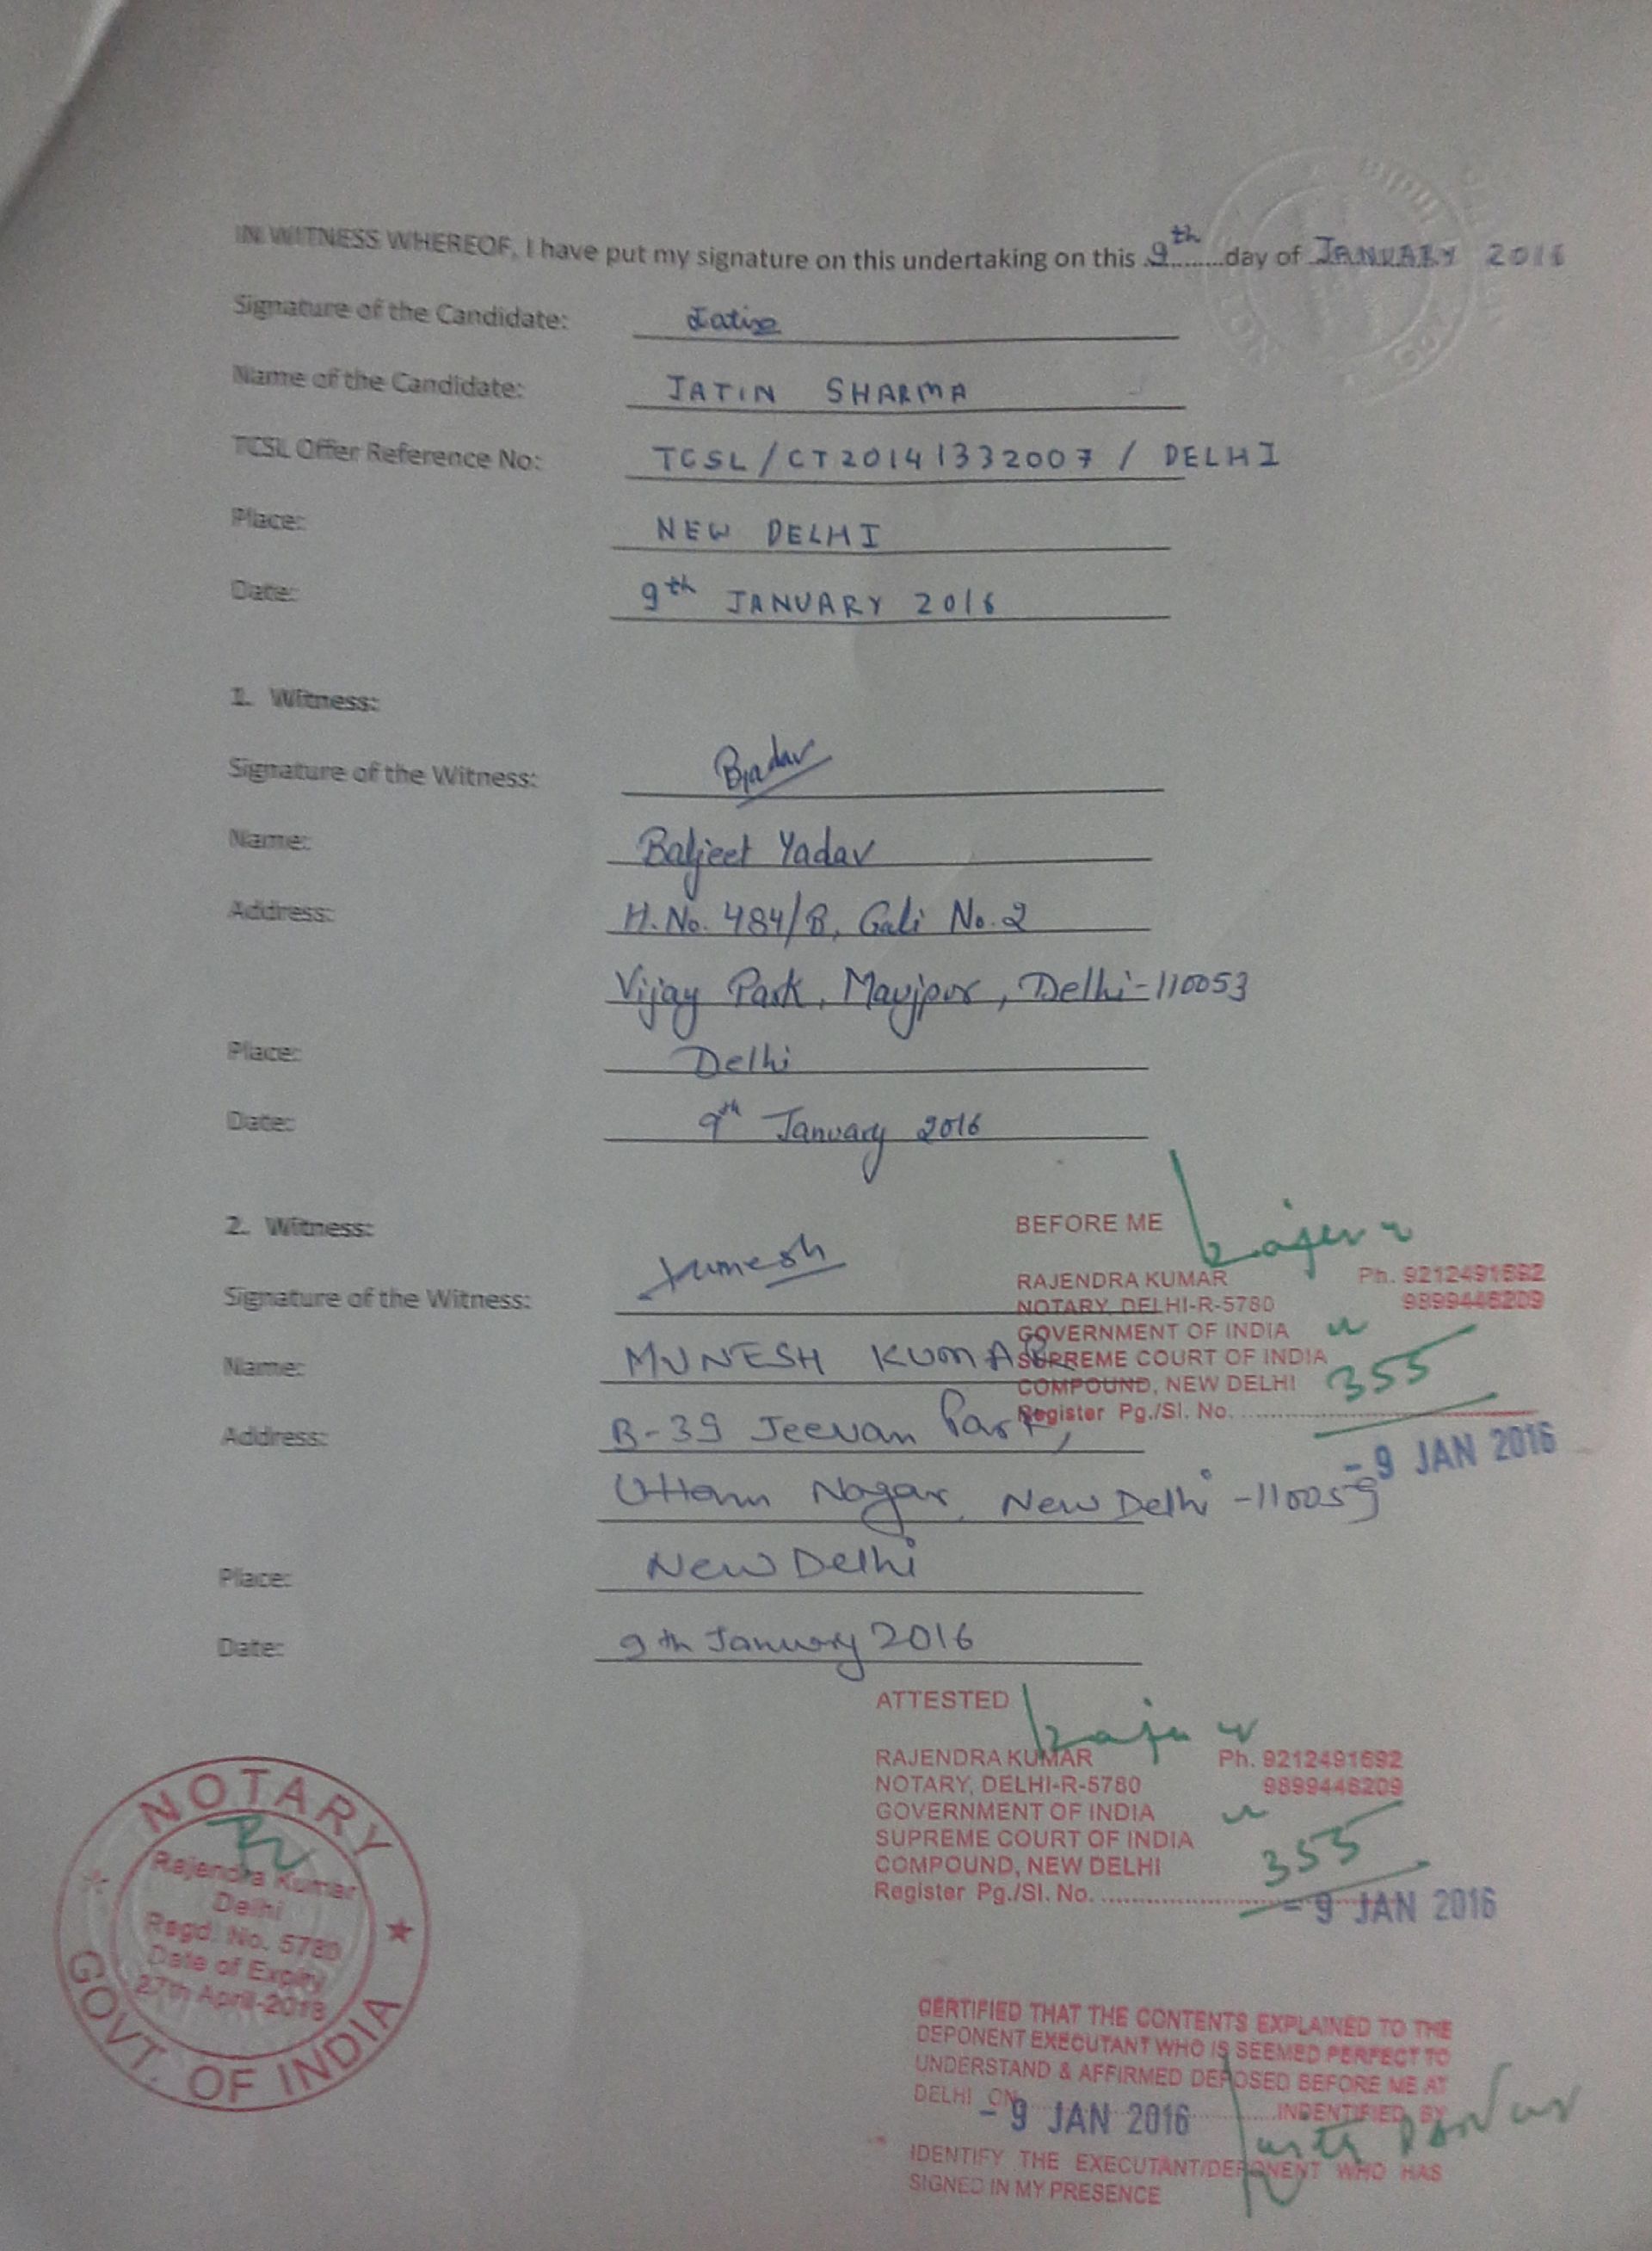 IN WITNESS WHEREOF, I have put my signature on this undertaking on this 9th day of JANUARY 2016
Signature of the Candidate: Jatin
Name of the Candidate: JATIN SHARMA
TCSL Offer Reference No: TCSL/CT20141332007 / DELHI
Place: NEW DELHI
Date: 9th JANUARY 2016
1. Witness:
Signature of the Witness: Byadav
Name: Baljeet Yadav
Address: H.No. 484/B, Gali No. 2
Vijay Park, Maujpur, Delhi-110053
Place: Delhi
Date: 9th January 2016
2. Witness:
Signature of the Witness:
Name: MUNESH KUMAR
Address: B-39 Jeevan Park,
Uttam Nagar, New Delhi -110059
Place: New Delhi
Date: 9th January 2016
BEFORE ME
RAJENDRA KUMAR Ph. 9212491692
NOTARY, DELHI-R-5780 9899446209
GOVERNMENT OF INDIA
SUPREME COURT OF INDIA
COMPOUND, NEW DELHI 355
Register Pg./Sl. No. ..........
- 9 JAN 2016
ATTESTED
RAJENDRA KUMAR Ph. 9212491692
NOTARY, DELHI-R-5780 9899446209
GOVERNMENT OF INDIA
SUPREME COURT OF INDIA
COMPOUND, NEW DELHI 355
Register Pg./Sl. No. ..........
- 9 JAN 2016
NOTARY
Rajendra Kumar
Delhi
Regd. No. 5780
Date of Expiry
27th April-2018
GOVT. OF INDIA
CERTIFIED THAT THE CONTENTS EXPLAINED TO THE
DEPONENT EXECUTANT WHO IS SEEMED PERFECT TO
UNDERSTAND & AFFIRMED DEPOSED BEFORE ME AT
DELHI ON - 9 JAN 2016 INDENTIFIED BY
IDENTIFY THE EXECUTANT/DEPONENT WHO HAS
SIGNED IN MY PRESENCE